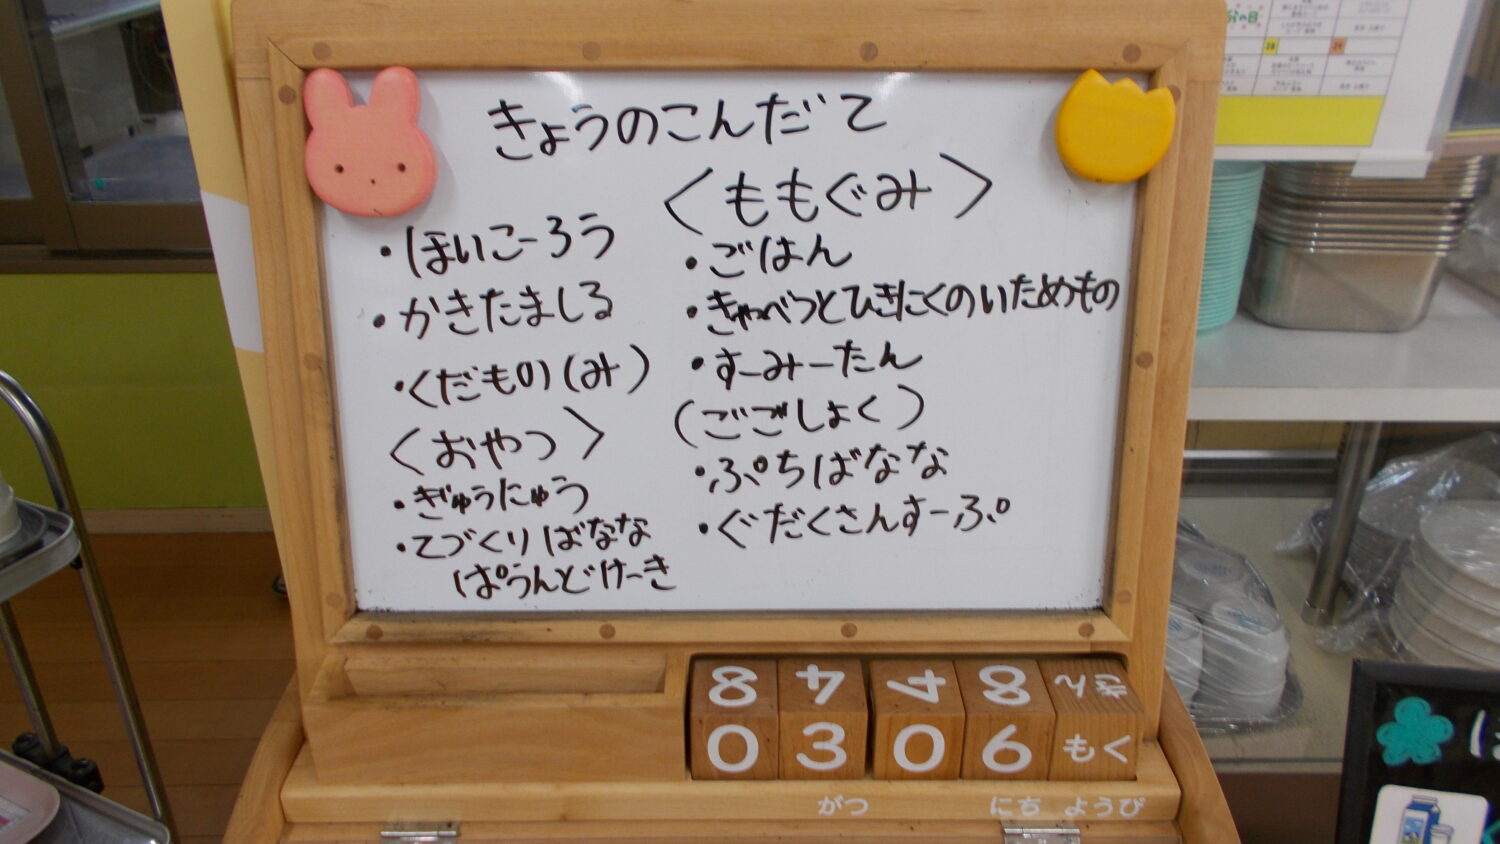 きょうのこんだて
・ほいこーろう
・かきたましる
・くだもの(み)
〈おやつ〉
・ぎゅうにゅう
・てづくりばなな
ぱうんどけーき
〈ももぐみ〉
・ごはん
・きゃべつとひきにくのいためもの
・すーみーたん
(ごごしょく)
・ぷちばなな
・ぐだくさんすーぷ
8 4 4 8 きん
0 3 0 6 もく
がつ にち ようび